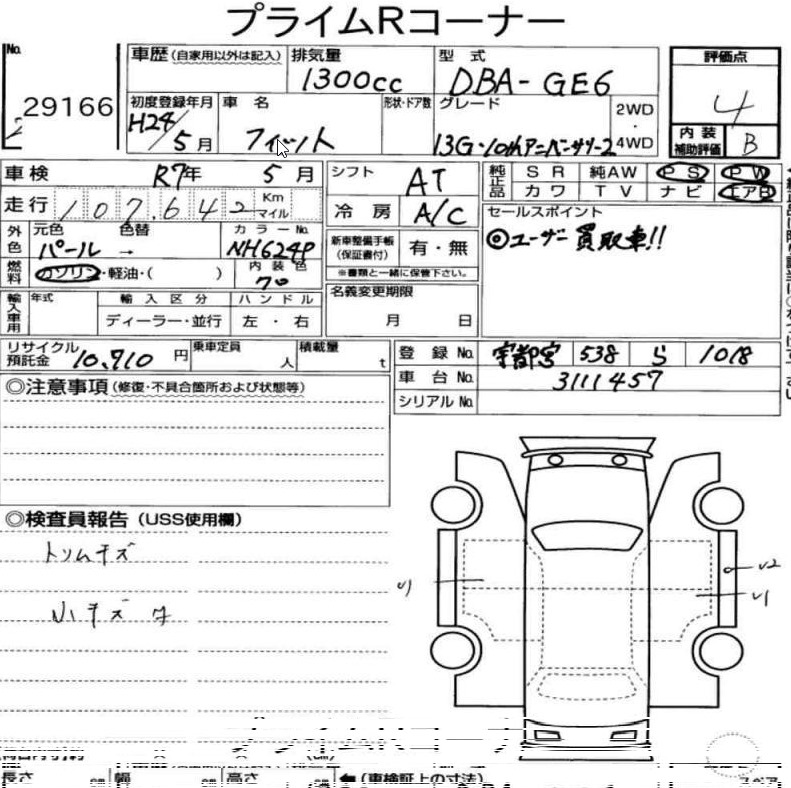 プライムRコーナー
No.
29166
車歴 (自家用以外は記入)
排気量
1300cc
型 式
DBA-GE6
評価点
4
初度登録年月
H24/5月
車 名
フィット
形状・ドア数
グレード
13G・10thアニバーサリー2
2WD
・
4WD
内 装
補助評価
B
車検
R7年 5月
シフト
AT
純正品
SR 純AW PS PW
カワ TV ナビ エアB
走行
107,642
Km
マイル
冷 房
A/C
セールスポイント
◎ユーザー買取車!!
外色
元色 色替
パール →
カラー No.
NH624P
新車整備手帳
(保証書付)
有・無
※書類と一緒に保管下さい。
燃料
ガソリン・軽油・( )
内 装 色
70
名義変更期限
月 日
輸入車用
年式
輸 入 区 分
ディーラー・並行
ハ ン ド ル
左 ・ 右
リサイクル
預託金
10,910 円
乗車定員
人
積載量
t
登 録 No.
宇都宮 538 ら 1018
車 台 No.
3111457
シリアル No.
◎注意事項 (修復・不具合箇所および状態等)
◎検査員報告 (USS使用欄)
トリムキズ
小キズ
U1
U2
U1
プライムRコーナー
長さ 幅 高さ
(車検証上の寸法)
スペア